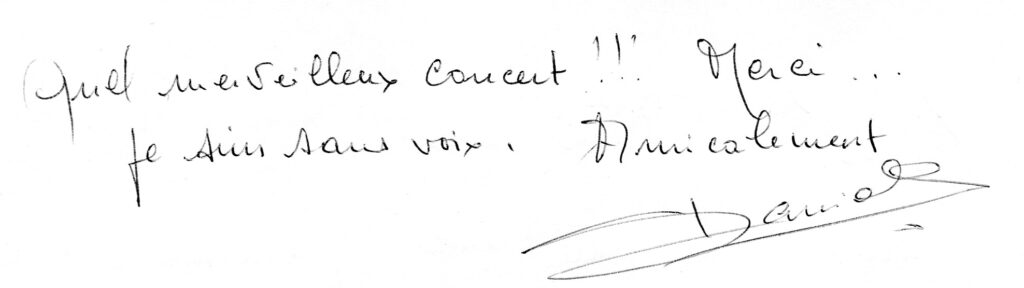 Quel merveilleux concert !!! Merci ...
Je suis sans voix. Amicalement